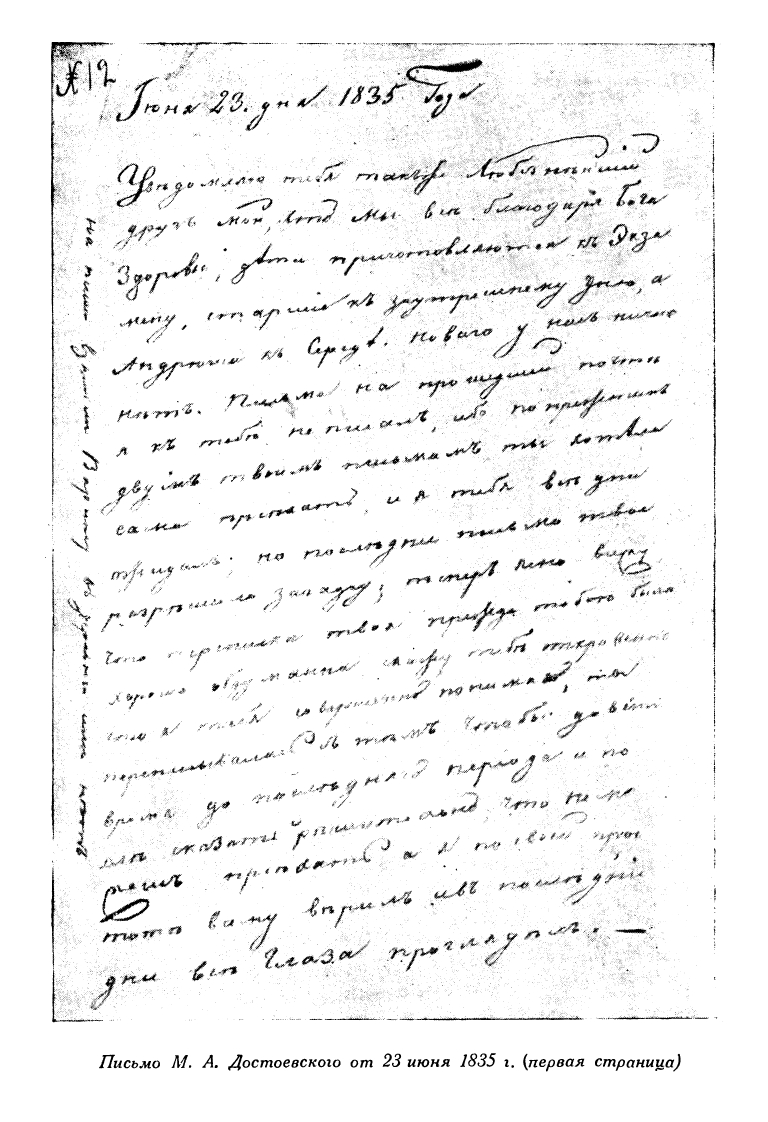 № 12
Іюня 23. дня 1835 Года
Увѣдомляю тебя также Любезнѣйшій
другъ мой, что мы всѣ благодаря Бога
Здоровы, дѣти приготовляются къ Экза
мену, старшіе къ заутрешнему дню, а
Андрюша къ Середѣ. Новаго у насъ ничего
нѣтъ. Письма на прошедшей почтѣ
я къ тебѣ не писалъ, ибо по прежнимъ
двумъ твоимъ письмамъ ты хотѣла
сама пріѣхать, и я тебя всѣ дни
ждалъ; но послѣднее письмо твое
разрѣшило загадку; теперь ясно вижу
что переписка твоя прежде тобою была
хорошо обдуманна скажу тебѣ откровенно
что я тебя совершенно понимаю, ты
переписывалась съ тѣмъ чтобы
время до послѣдняго періода и по
сказать рѣшительно, что не мо
жешь пріѣхать а я по своей прос
тотѣ всему вѣрилъ и въ послѣдніе
дни всѣ Глаза проглядѣлъ. —
на
Письмо М. А. Достоевского от 23 июня 1835 г. (первая страница)